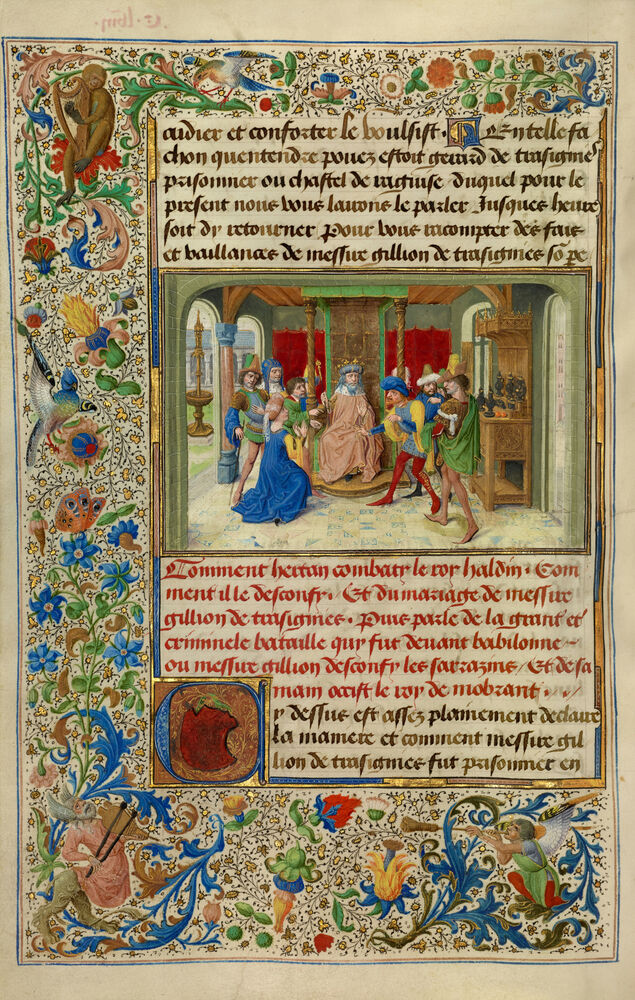 aidier et conforter le voulsist. En telle fa
chon quentendre pouez estoit gerard de trasignies
prisonnier ou chastel de ragiuse duquel pour le
present nous vous lairons le parler Jusques heure
soit dy retourner Pour vous racompter des fais
et vaillances de messire gillion de trasignies so pe
Comment hertan combaty le roy haldin. Com
ment il le desconfy. Et du mariage de messire
gillion de trasignies. Puis parle de la grant et
criminele bataille quy fut deuant babilonne
ou messire gillion desconfy les sarrazins / Et de sa
main occist le roy de mobrant.
Cy dessus est assez plainement declaire
la maniere et comment messire gil
lion de trasignies fut prisonnier en